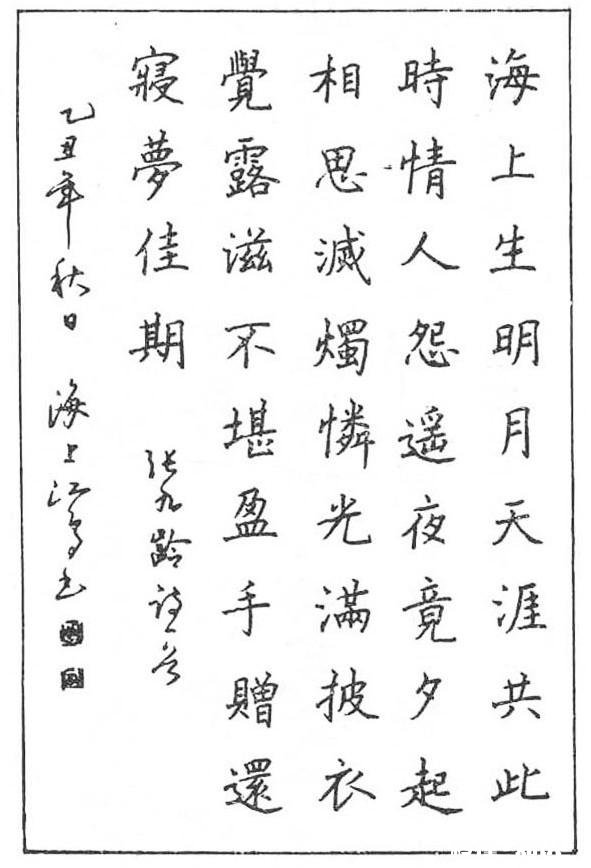 海上生明月天涯共此
時情人怨遥夜竟夕起
相思滅燭憐光滿披衣
覺露滋不堪盈手贈還
寢夢佳期 張九齡詩一首
乙丑年秋日 海上江鳥书